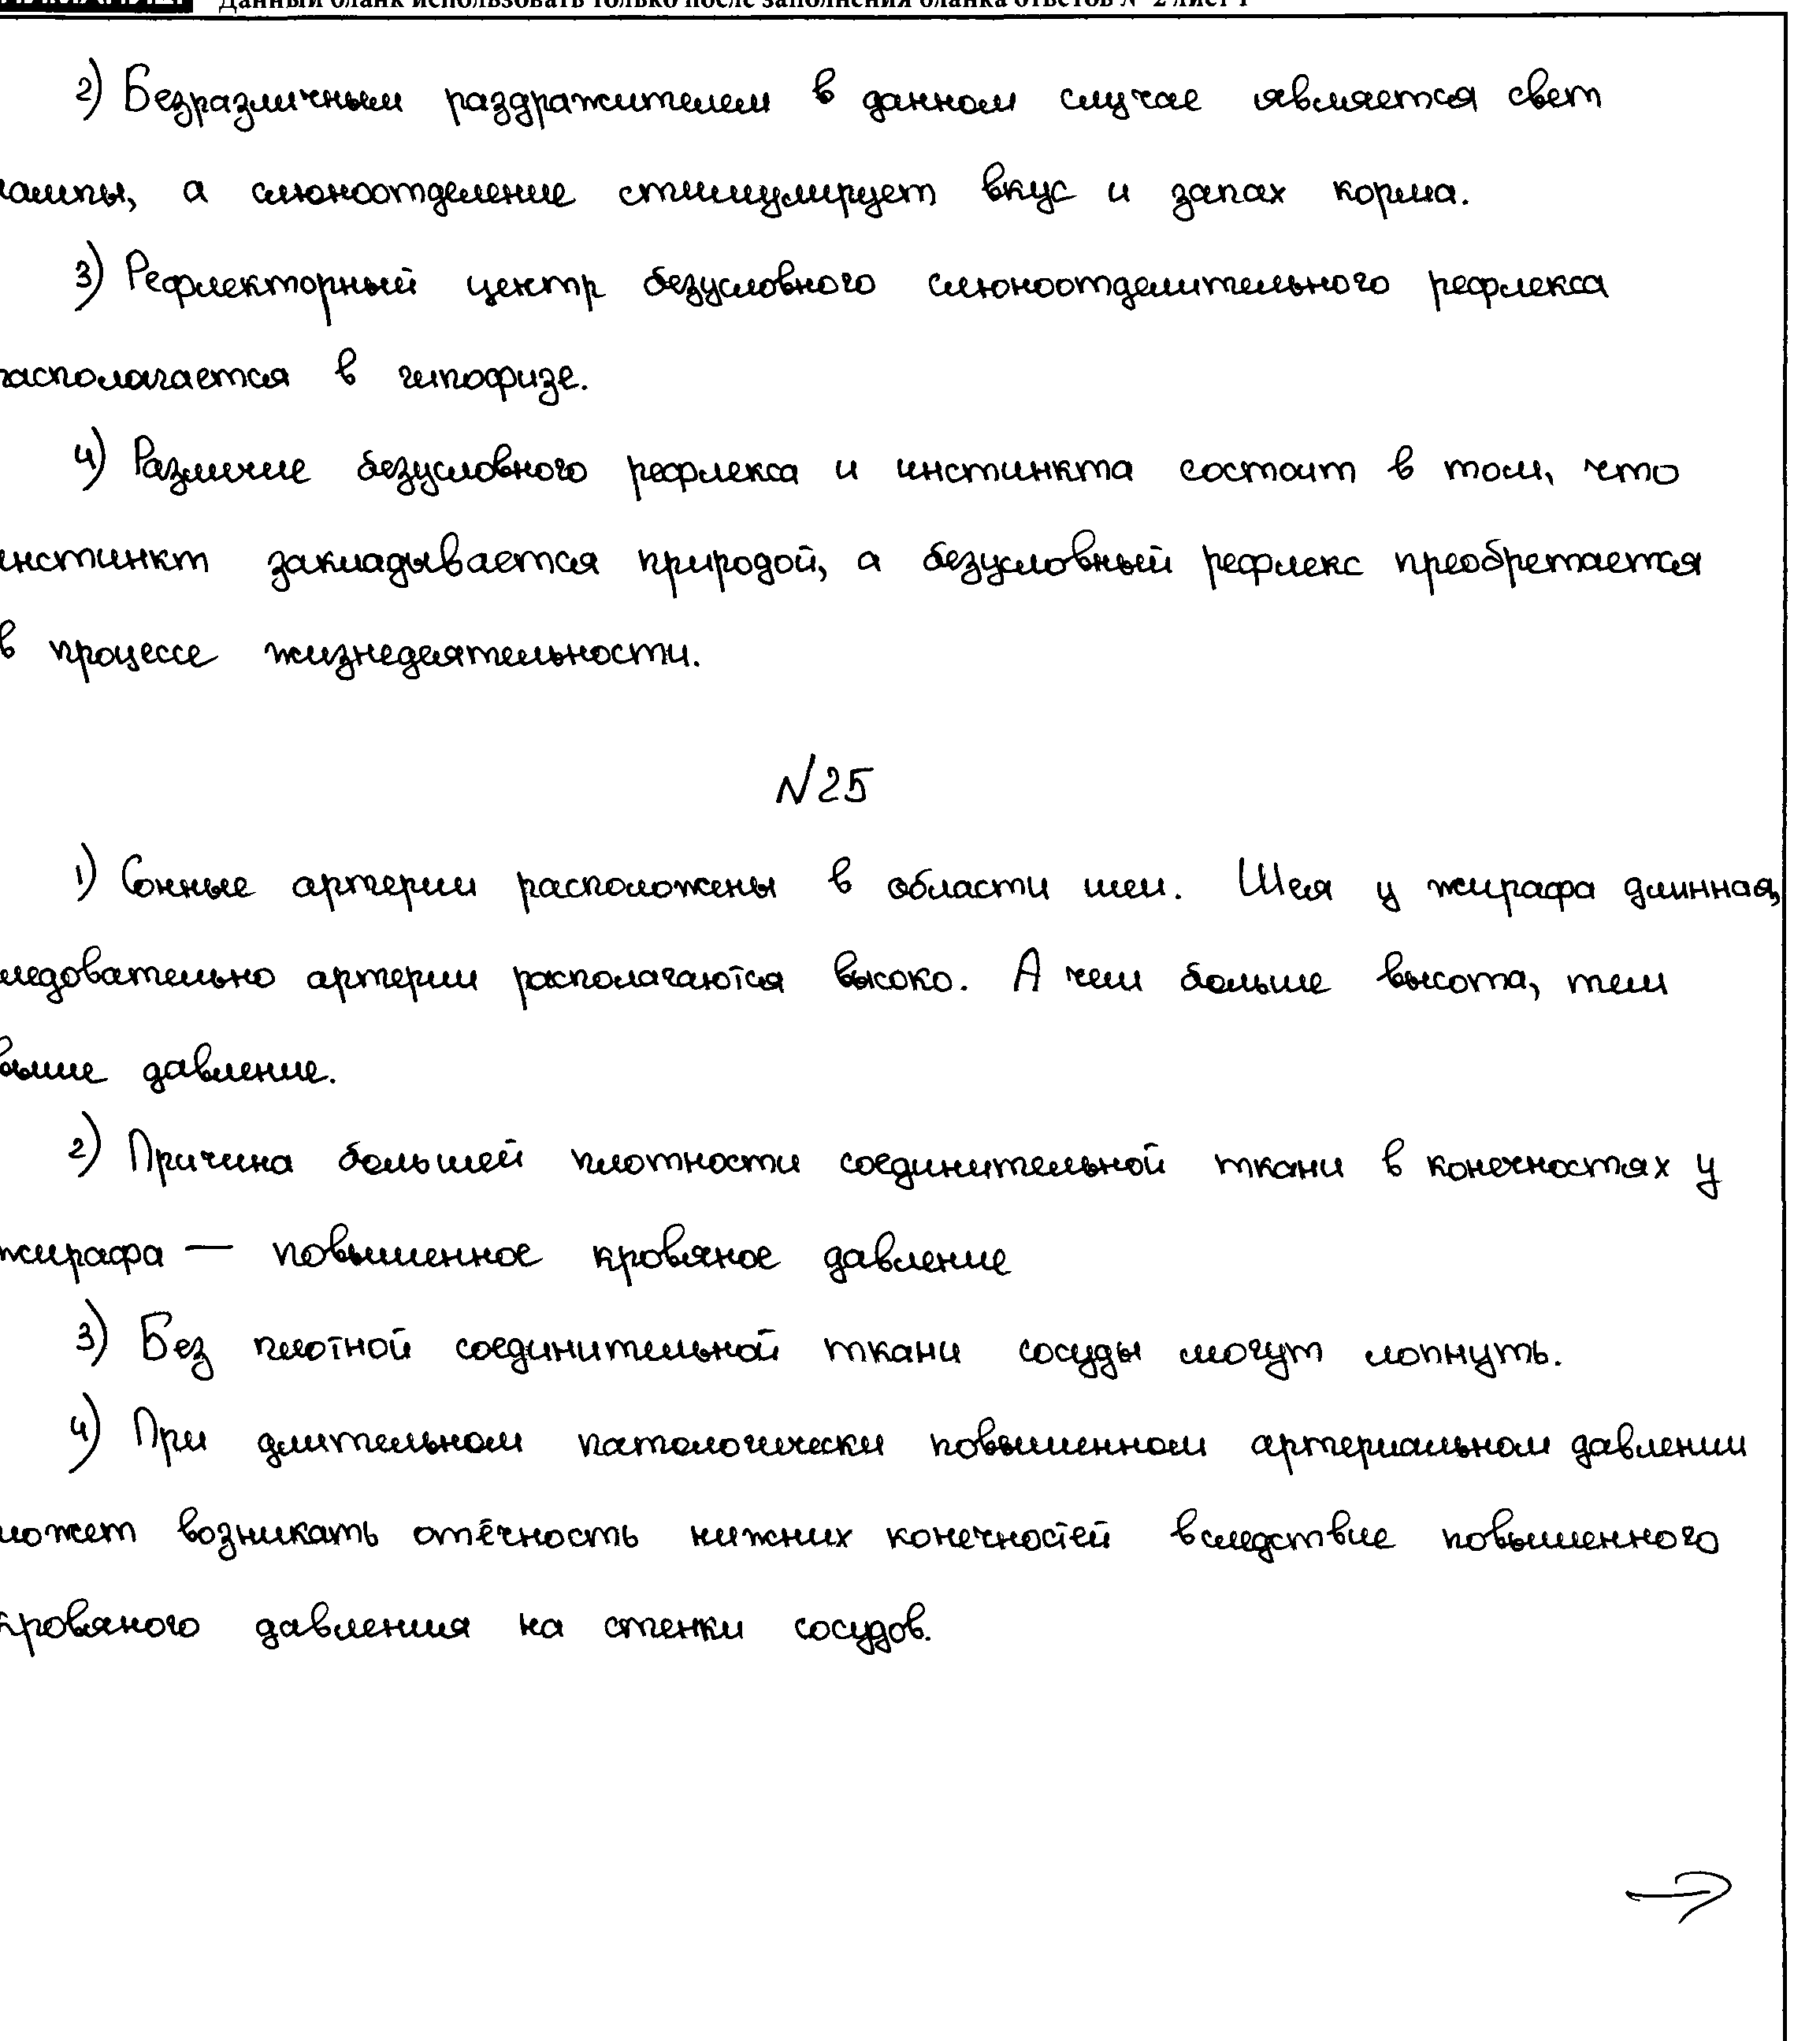 Данный бланк использовать только после заполнения бланка ответов № 2 лист 1
2) Безразличным раздражителем в данном случае является свет
лампы, а слюноотделение стимулирует вкус и запах корма.
3) Рефлекторный центр безусловного слюноотделительного рефлекса
располагается в гипофизе.
4) Различие безусловного рефлекса и инстинкта состоит в том, что
инстинкт закладывается природой, а безусловный рефлекс преобретается
в процессе жизнедеятельности.
№25
1) Сонные артерии расположены в области шеи. Шея у жирафа длинная,
следовательно артерии располагаются высоко. А чем больше высота, тем
выше давление.
2) Причина большей плотности соединительной ткани в конечностях у
жирафа — повышенное кровяное давление
3) Без плотной соединительной ткани сосуды могут лопнуть.
4) При длительном патологически повышенном артериальном давлении
может возникать отёчность нижних конечностей вследствие повышенного
кровяного давления на стенки сосудов.